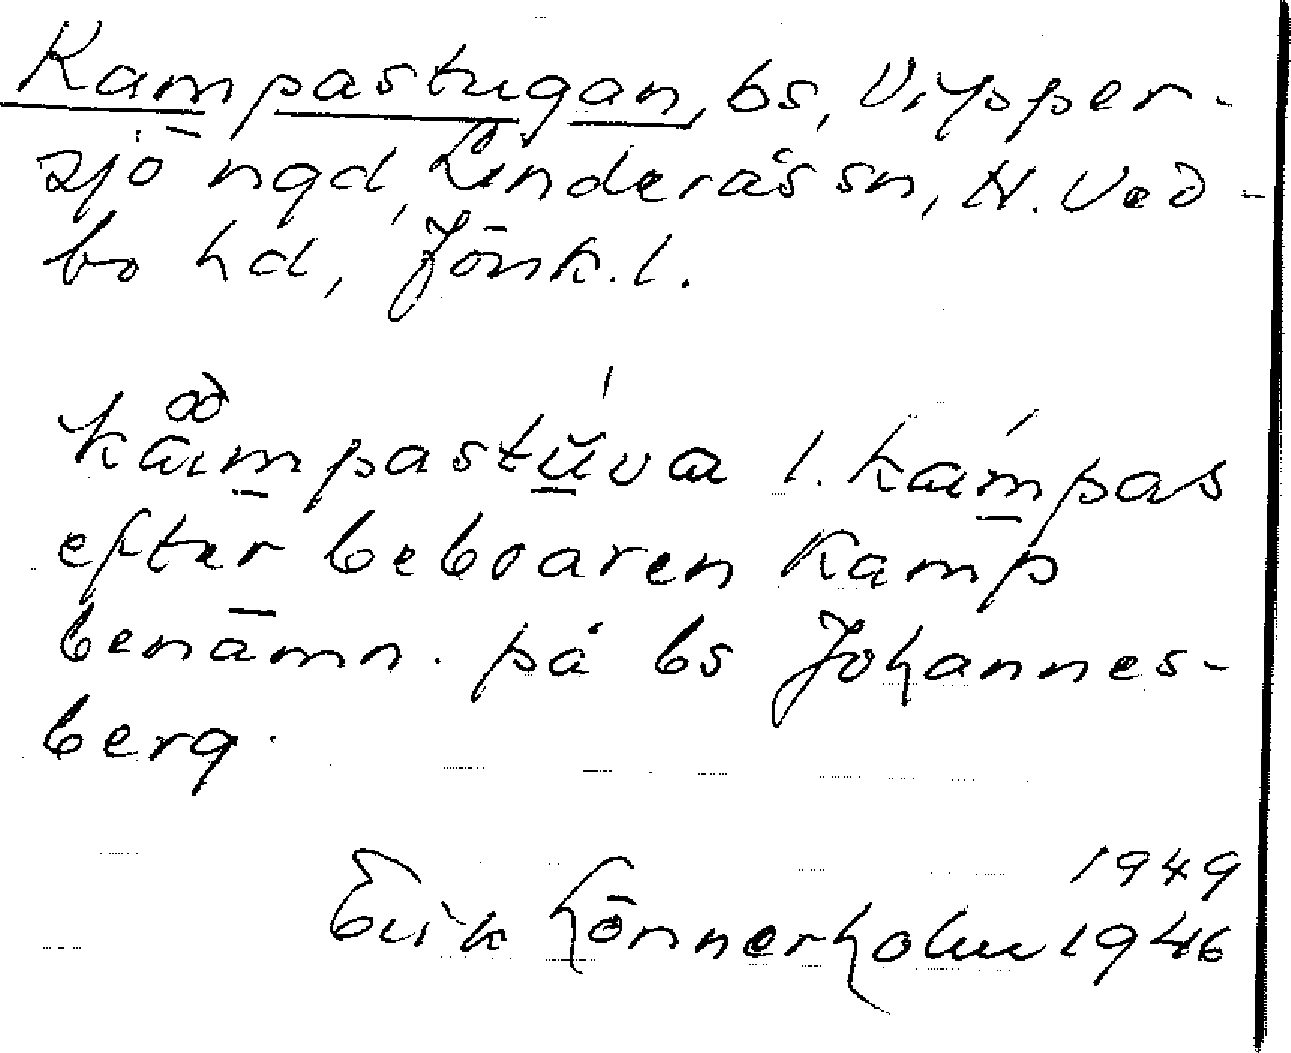 Kampastugan, bs, Vipper-
sjö ngd, Linderås sn, N. Ved-
bo hd, Jönk. l.
kampastuva l. kampas
efter beboaren Kamp
benämn. på bs Johannes-
berg.
1949
Erik Lönnerholm 1946